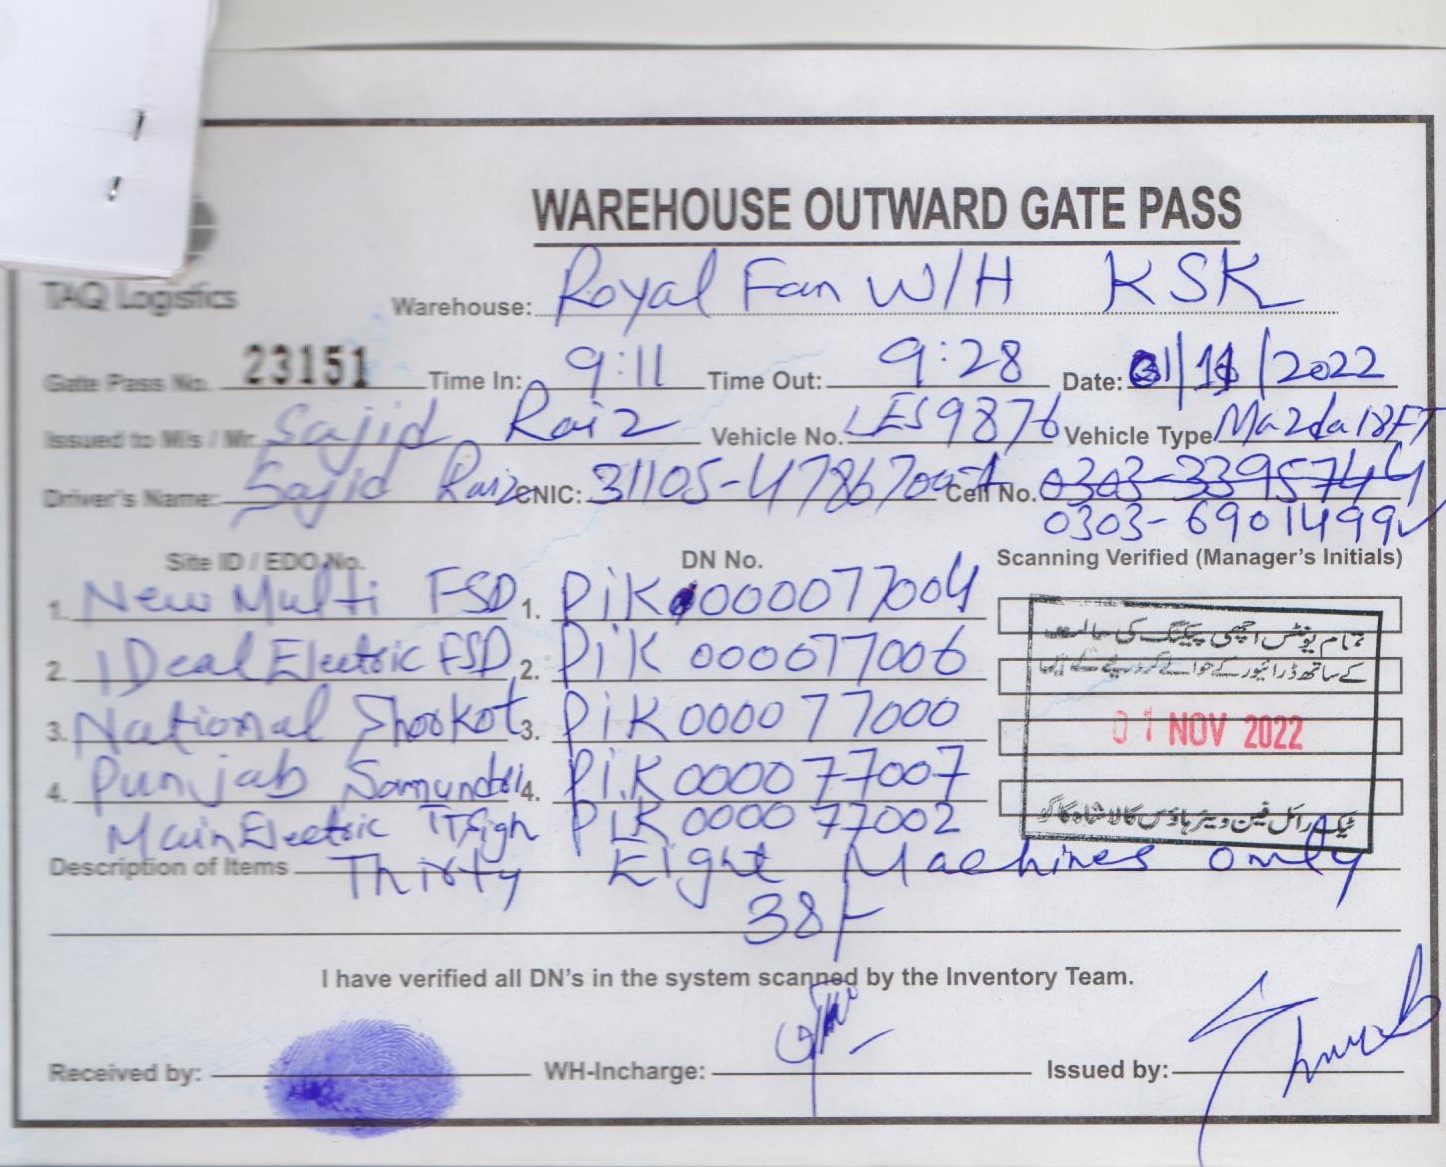 WAREHOUSE OUTWARD GATE PASS
TAQ Logistics
Warehouse: Royal Fan W/H KSK
Gate Pass No. 23151 Time In: 9:11 Time Out: 9:28 Date: 01/11/2022
Issued to M/s / Mr. Sajid Raiz Vehicle No. LES9876 Vehicle Type Mazda 18FT
Driver's Name: Sajid Raiz CNIC: 31105-4786700-1 Cell No. 0303-3395744
0303-6901499
Site ID / EDO No. DN No. Scanning Verified (Manager's Initials)
1. New Multi FSD 1. PiK 0000077004
2. IDeal Electric FSD 2. PiK 000077006
3. National Shorkot 3. PiK 0000 77000
4. Punjab Samundri 4. Pi.K 0000 77007
Main Electric PiK 0000 77002
تمام یونٹس اچھی پیکینگ کی حالت
کے ساتھ ڈرائیور کے حوالے کر دیئے گئے
01 NOV 2022
ٹیک رائل فین ویئر ہاؤس کالا شاہ کاکو
Description of Items Thirty Eight Machines only
38/-
I have verified all DN's in the system scanned by the Inventory Team.
Received by: WH-Incharge: Issued by: